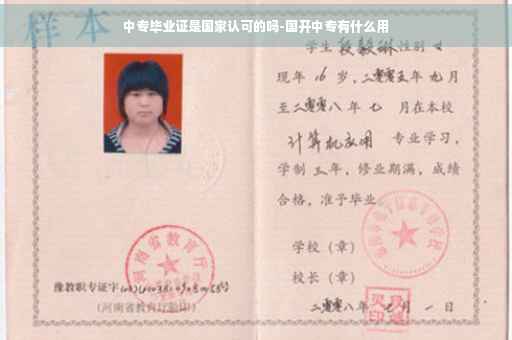 中专毕业证是国家认可的吗-国开中专有什么用
样本
学生段毅琳性别女
现年16岁,二零零五年九月
至二零零八年七月在本校
计算机应用 专业学习,
学制三年,修业期满,成绩
合格,准予毕业
学校(章)
校长(章)
二零零八年七月一日
河南省教育厅
豫教职专证字
(河南省教育厅验印)